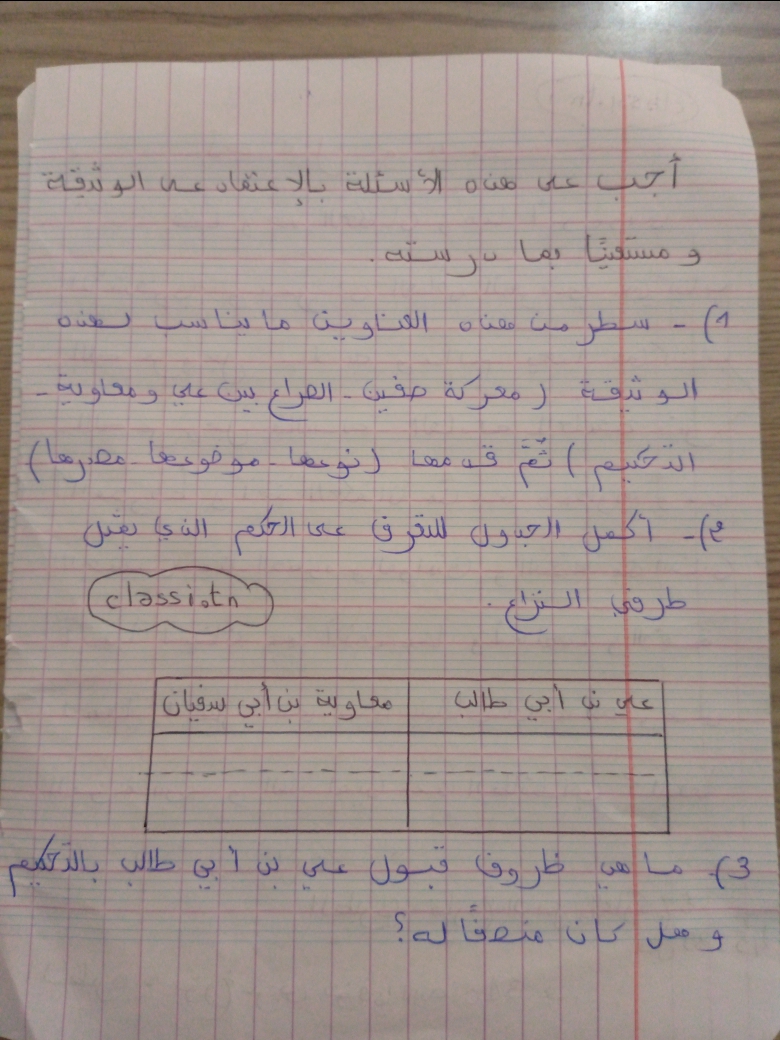 أجب على هذه الأسئلة بالإعتماد على الوثيقة
و مستعينًا بما درسته.
1)- سطر من هذه العناوين ما يناسب لهذه
الوثيقة (معركة صفين - الصراع بين علي ومعاوية -
التحكيم) ثمّ قدمها (نوعها - موضوعها - مصدرها)
2)- أكمل الجدول للتعرف على الحكم الذي يمثل
طرفي النزاع.
classi.tn
علي بن أبي طالب
معاوية بن أبي سفيان
3)- ما هي ظروف قبول علي بن أبي طالب بالتحكيم
و هل كان منصفًا له؟